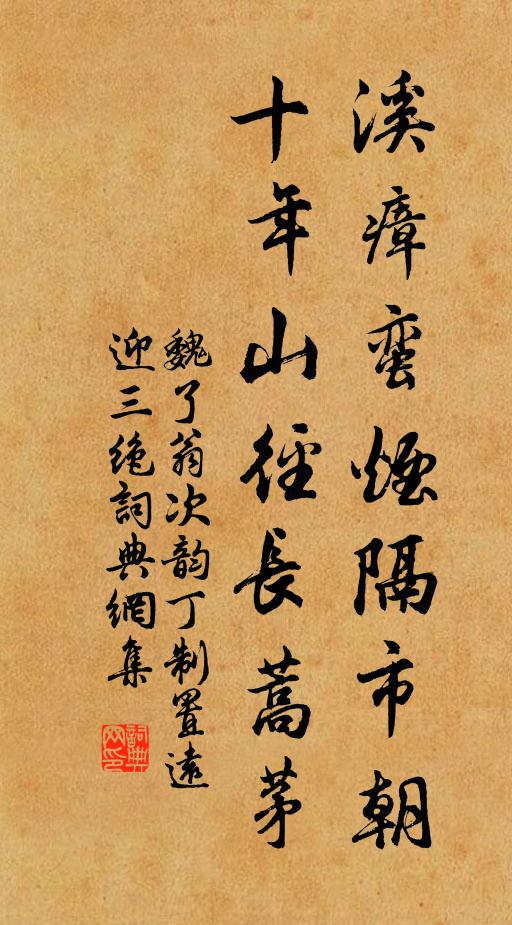 溪瘴蛮煙隔市朝
十年山徑長蒿茅
魏了翁次韵丁制置遠
迎三绝詞典網集
詞典網印